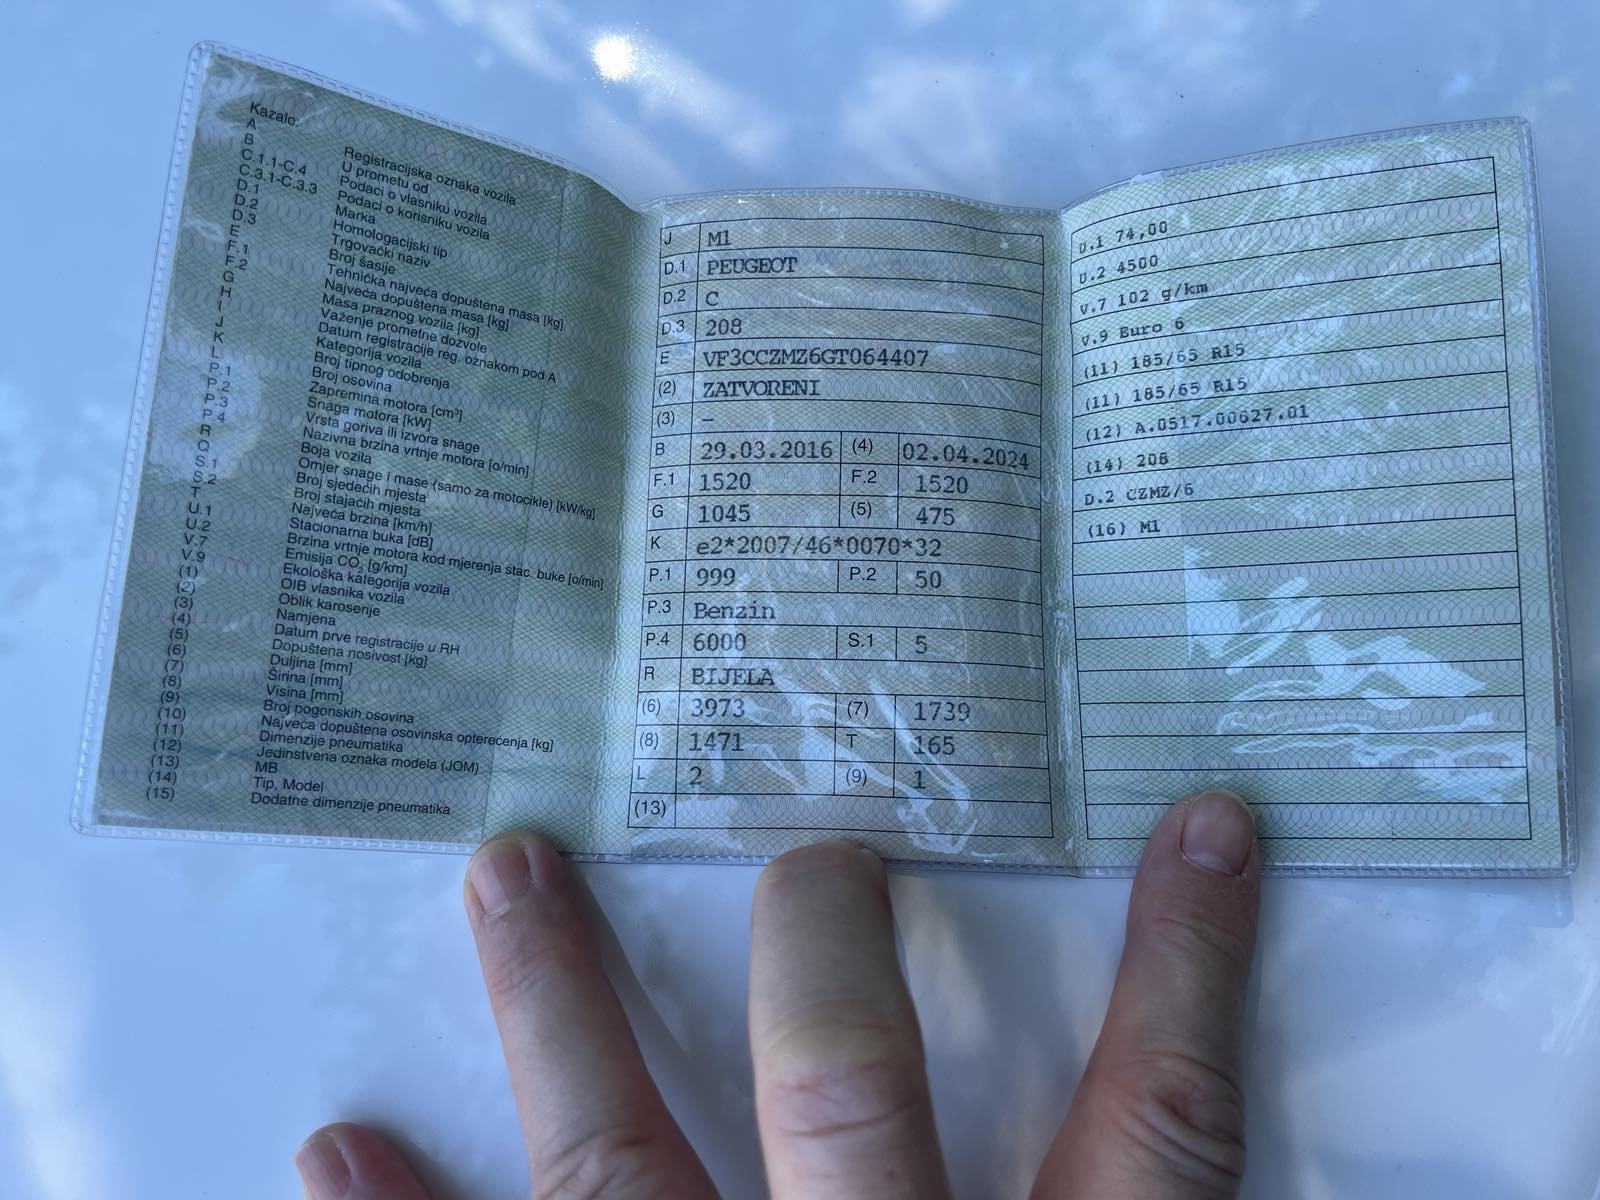 Kazalo:
A Registracijska oznaka vozila
B U prometu od
C.1.1-C.4 Podaci o vlasniku vozila
C.3.1-C.3.3 Podaci o korisniku vozila
D.1 Marka
D.2 Homologacijski tip
D.3 Trgovački naziv
E Broj šasije
F.1 Tehnička najveća dopuštena masa [kg]
F.2 Najveća dopuštena masa [kg]
G Masa praznog vozila [kg]
H Važenje prometne dozvole
I Datum registracije reg. oznakom pod A
J Kategorija vozila
K Broj tipnog odobrenja
L Broj osovina
P.1 Zapremina motora [cm³]
P.2 Snaga motora [kW]
P.3 Vrsta goriva ili izvora snage
P.4 Nazivna brzina vrtnje motora [o/min]
R Boja vozila
Q Omjer snage i mase (samo za motocikle) [kW/kg]
S.1 Broj sjedećih mjesta
S.2 Broj stajaćih mjesta
T Najveća brzina [km/h]
U.1 Stacionarna buka [dB]
U.2 Brzina vrtnje motora kod mjerenja stac. buke [o/min]
V.7 Emisija CO₂ [g/km]
V.9 Ekološka kategorija vozila
(1) OIB vlasnika vozila
(2) Oblik karoserije
(3) Namjena
(4) Datum prve registracije u RH
(5) Dopuštena nosivost [kg]
(6) Duljina [mm]
(7) Širina [mm]
(8) Visina [mm]
(9) Broj pogonskih osovina
(10) Najveća dopuštena osovinska opterećenja [kg]
(11) Dimenzije pneumatika
(12) Jedinstvena oznaka modela (JOM)
(13) MB
(14) Tip, Model
(15) Dodatne dimenzije pneumatika
J M1
D.1 PEUGEOT
D.2 C
D.3 208
E VF3CCZMZ6GT064407
(2) ZATVORENI
(3) –
B 29.03.2016 (4) 02.04.2024
F.1 1520 F.2 1520
G 1045 (5) 475
K e2*2007/46*0070*32
P.1 999 P.2 50
P.3 Benzin
P.4 6000 S.1 5
R BIJELA
(6) 3973 (7) 1739
(8) 1471 T 165
L 2 (9) 1
(13)
U.1 74,00
U.2 4500
V.7 102 g/km
V.9 Euro 6
(11) 185/65 R15
(11) 185/65 R15
(12) A.0517.00627.01
(14) 208
D.2 CZMZ/6
(16) M1